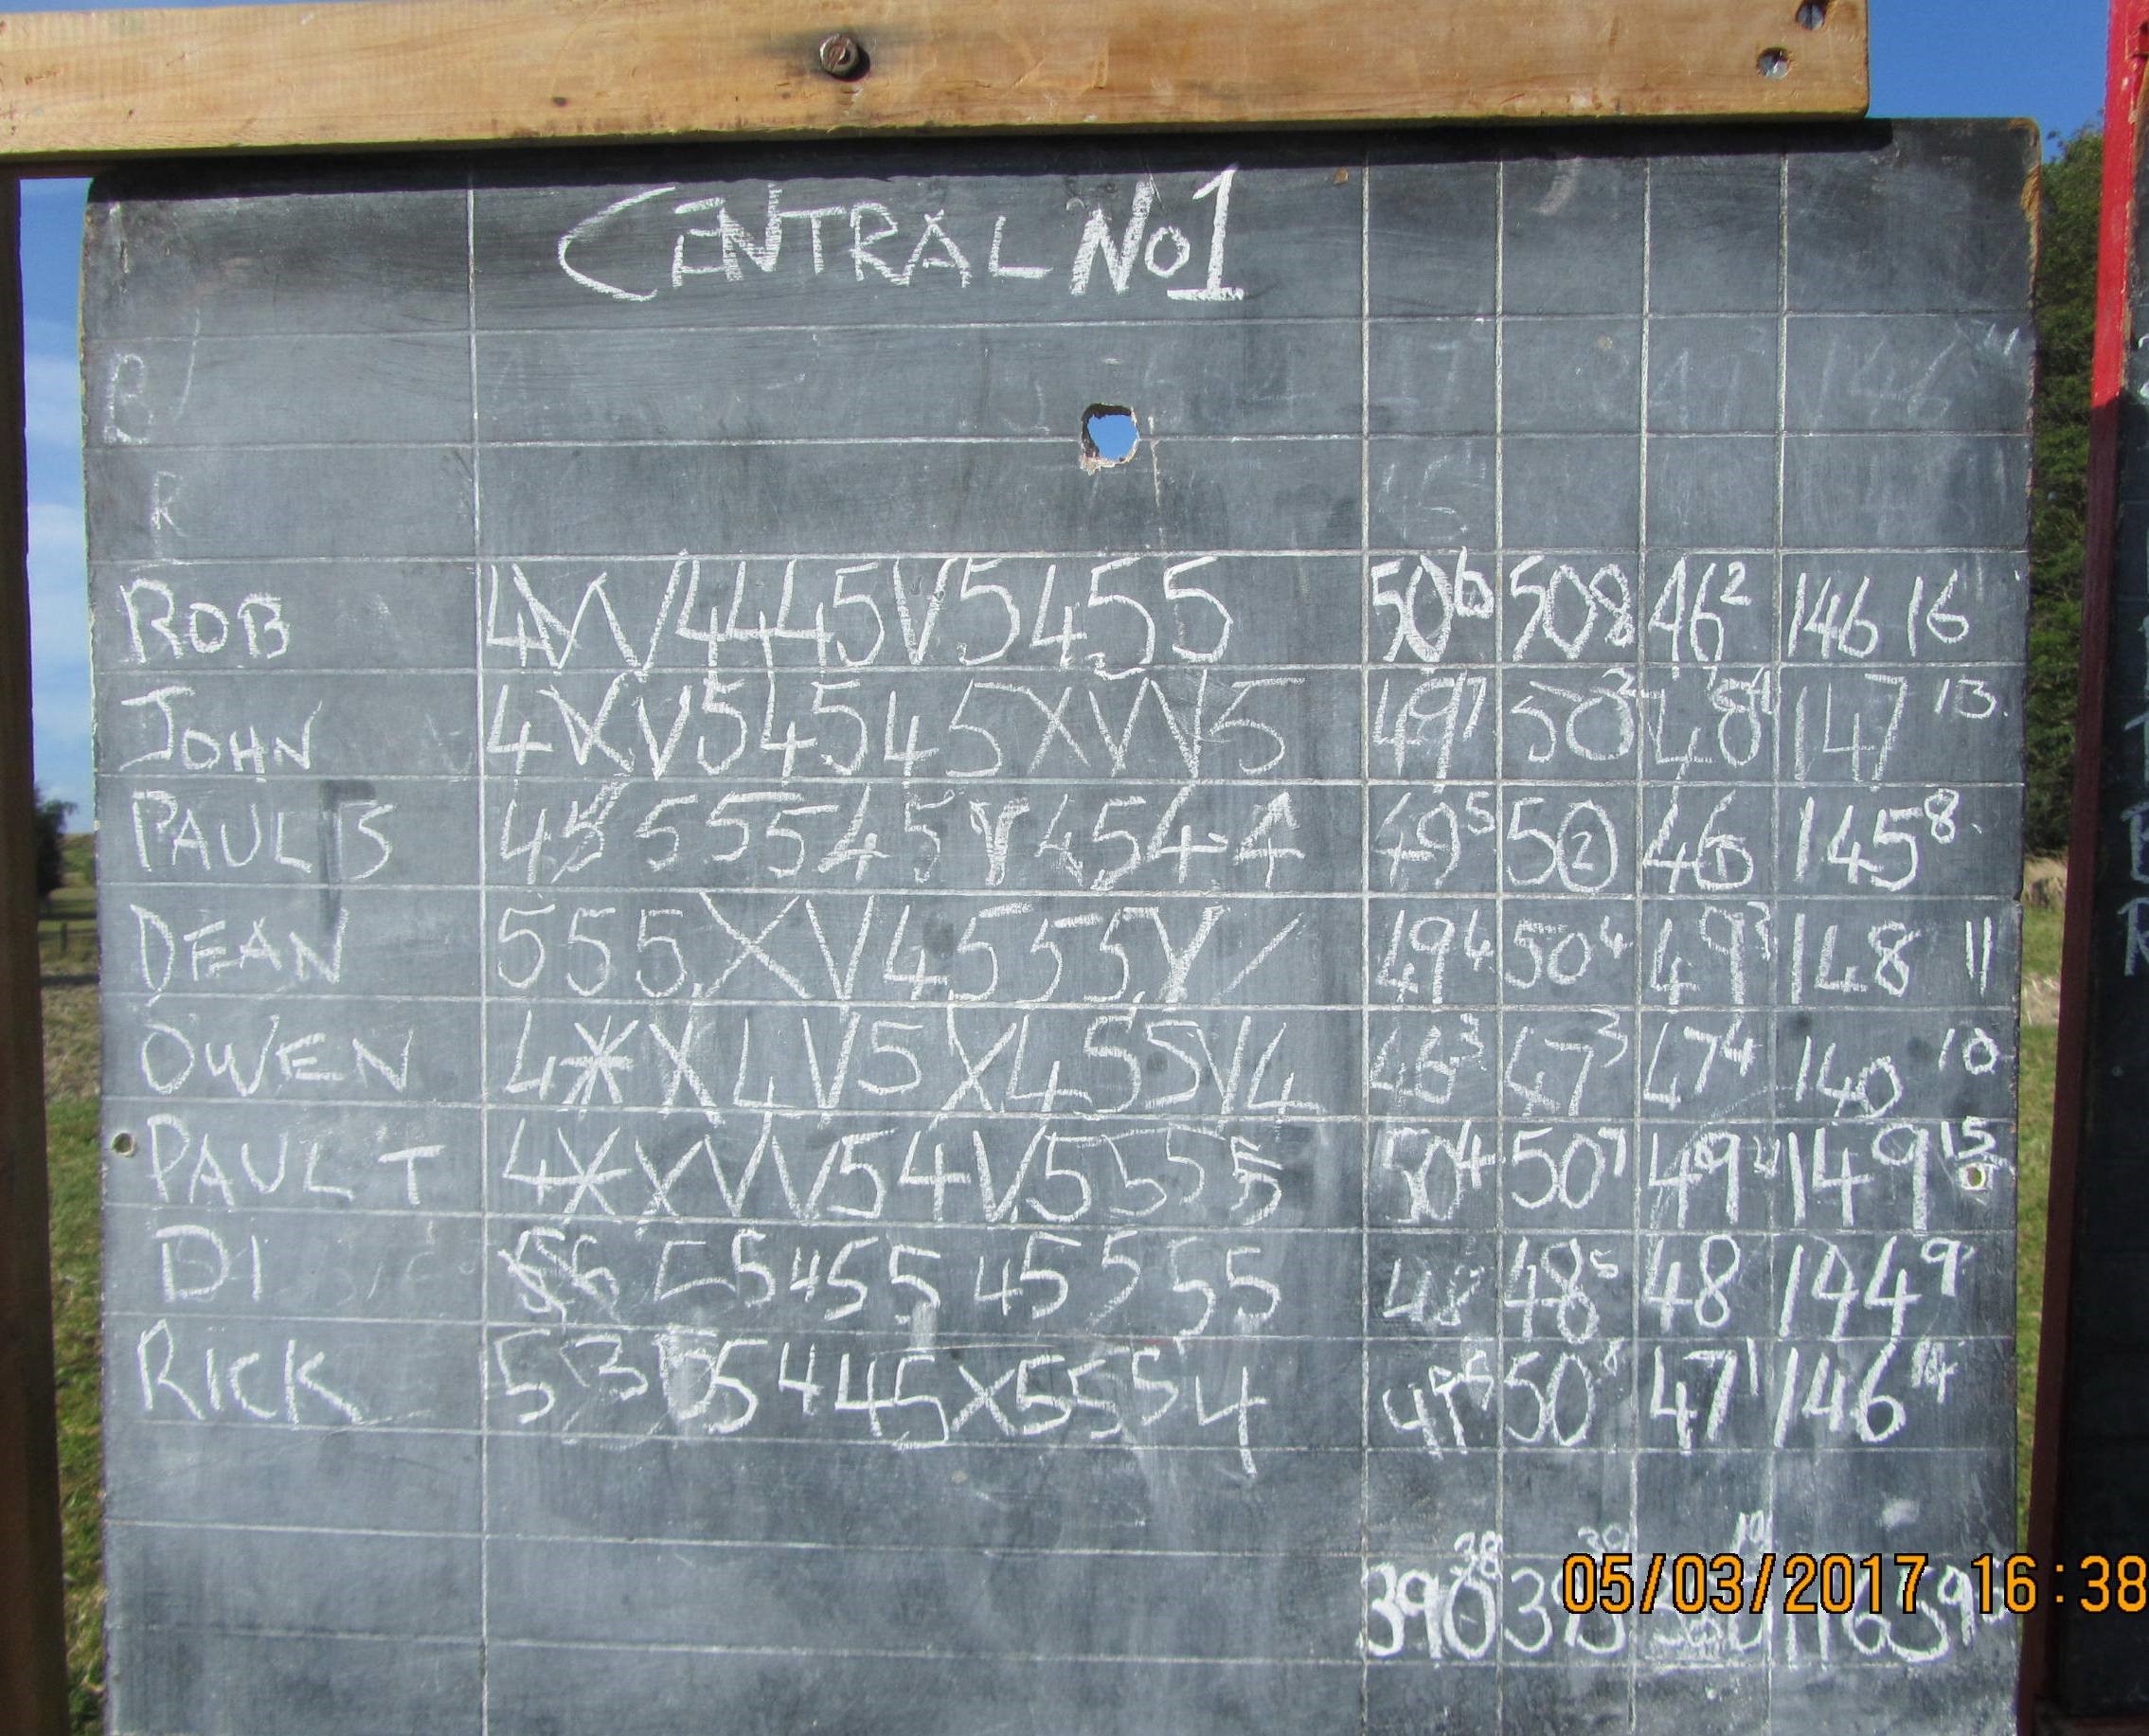 CENTRAL No1
B
R
ROB 4 V V V 4 4 4 5 V 5 4 5 5 50 6 50 8 46 2 146 16
JOHN 4 X V 5 4 5 4 5 X V V 5 49 7 50 48 147 13
PAUL B 4 5 5 5 5 4 5 V 4 5 4 4 49 5 50 2 46 1 145 8
DEAN 5 5 5 X V 4 5 5 5 V 49 4 50 4 49 3 148 11
OWEN 4 X X 4 V 5 X 4 5 5 V 4 46 3 47 3 47 4 140 10
PAUL T 4 X X V V 5 4 V 5 5 5 5 50 4 50 7 49 149 15
DI 5 5 4 5 5 4 5 5 5 5 48 48 5 48 144 9
RICK 5 3 5 4 4 5 X 5 5 5 4 50 47 1 146 14
390 38
05/03/2017 16:38